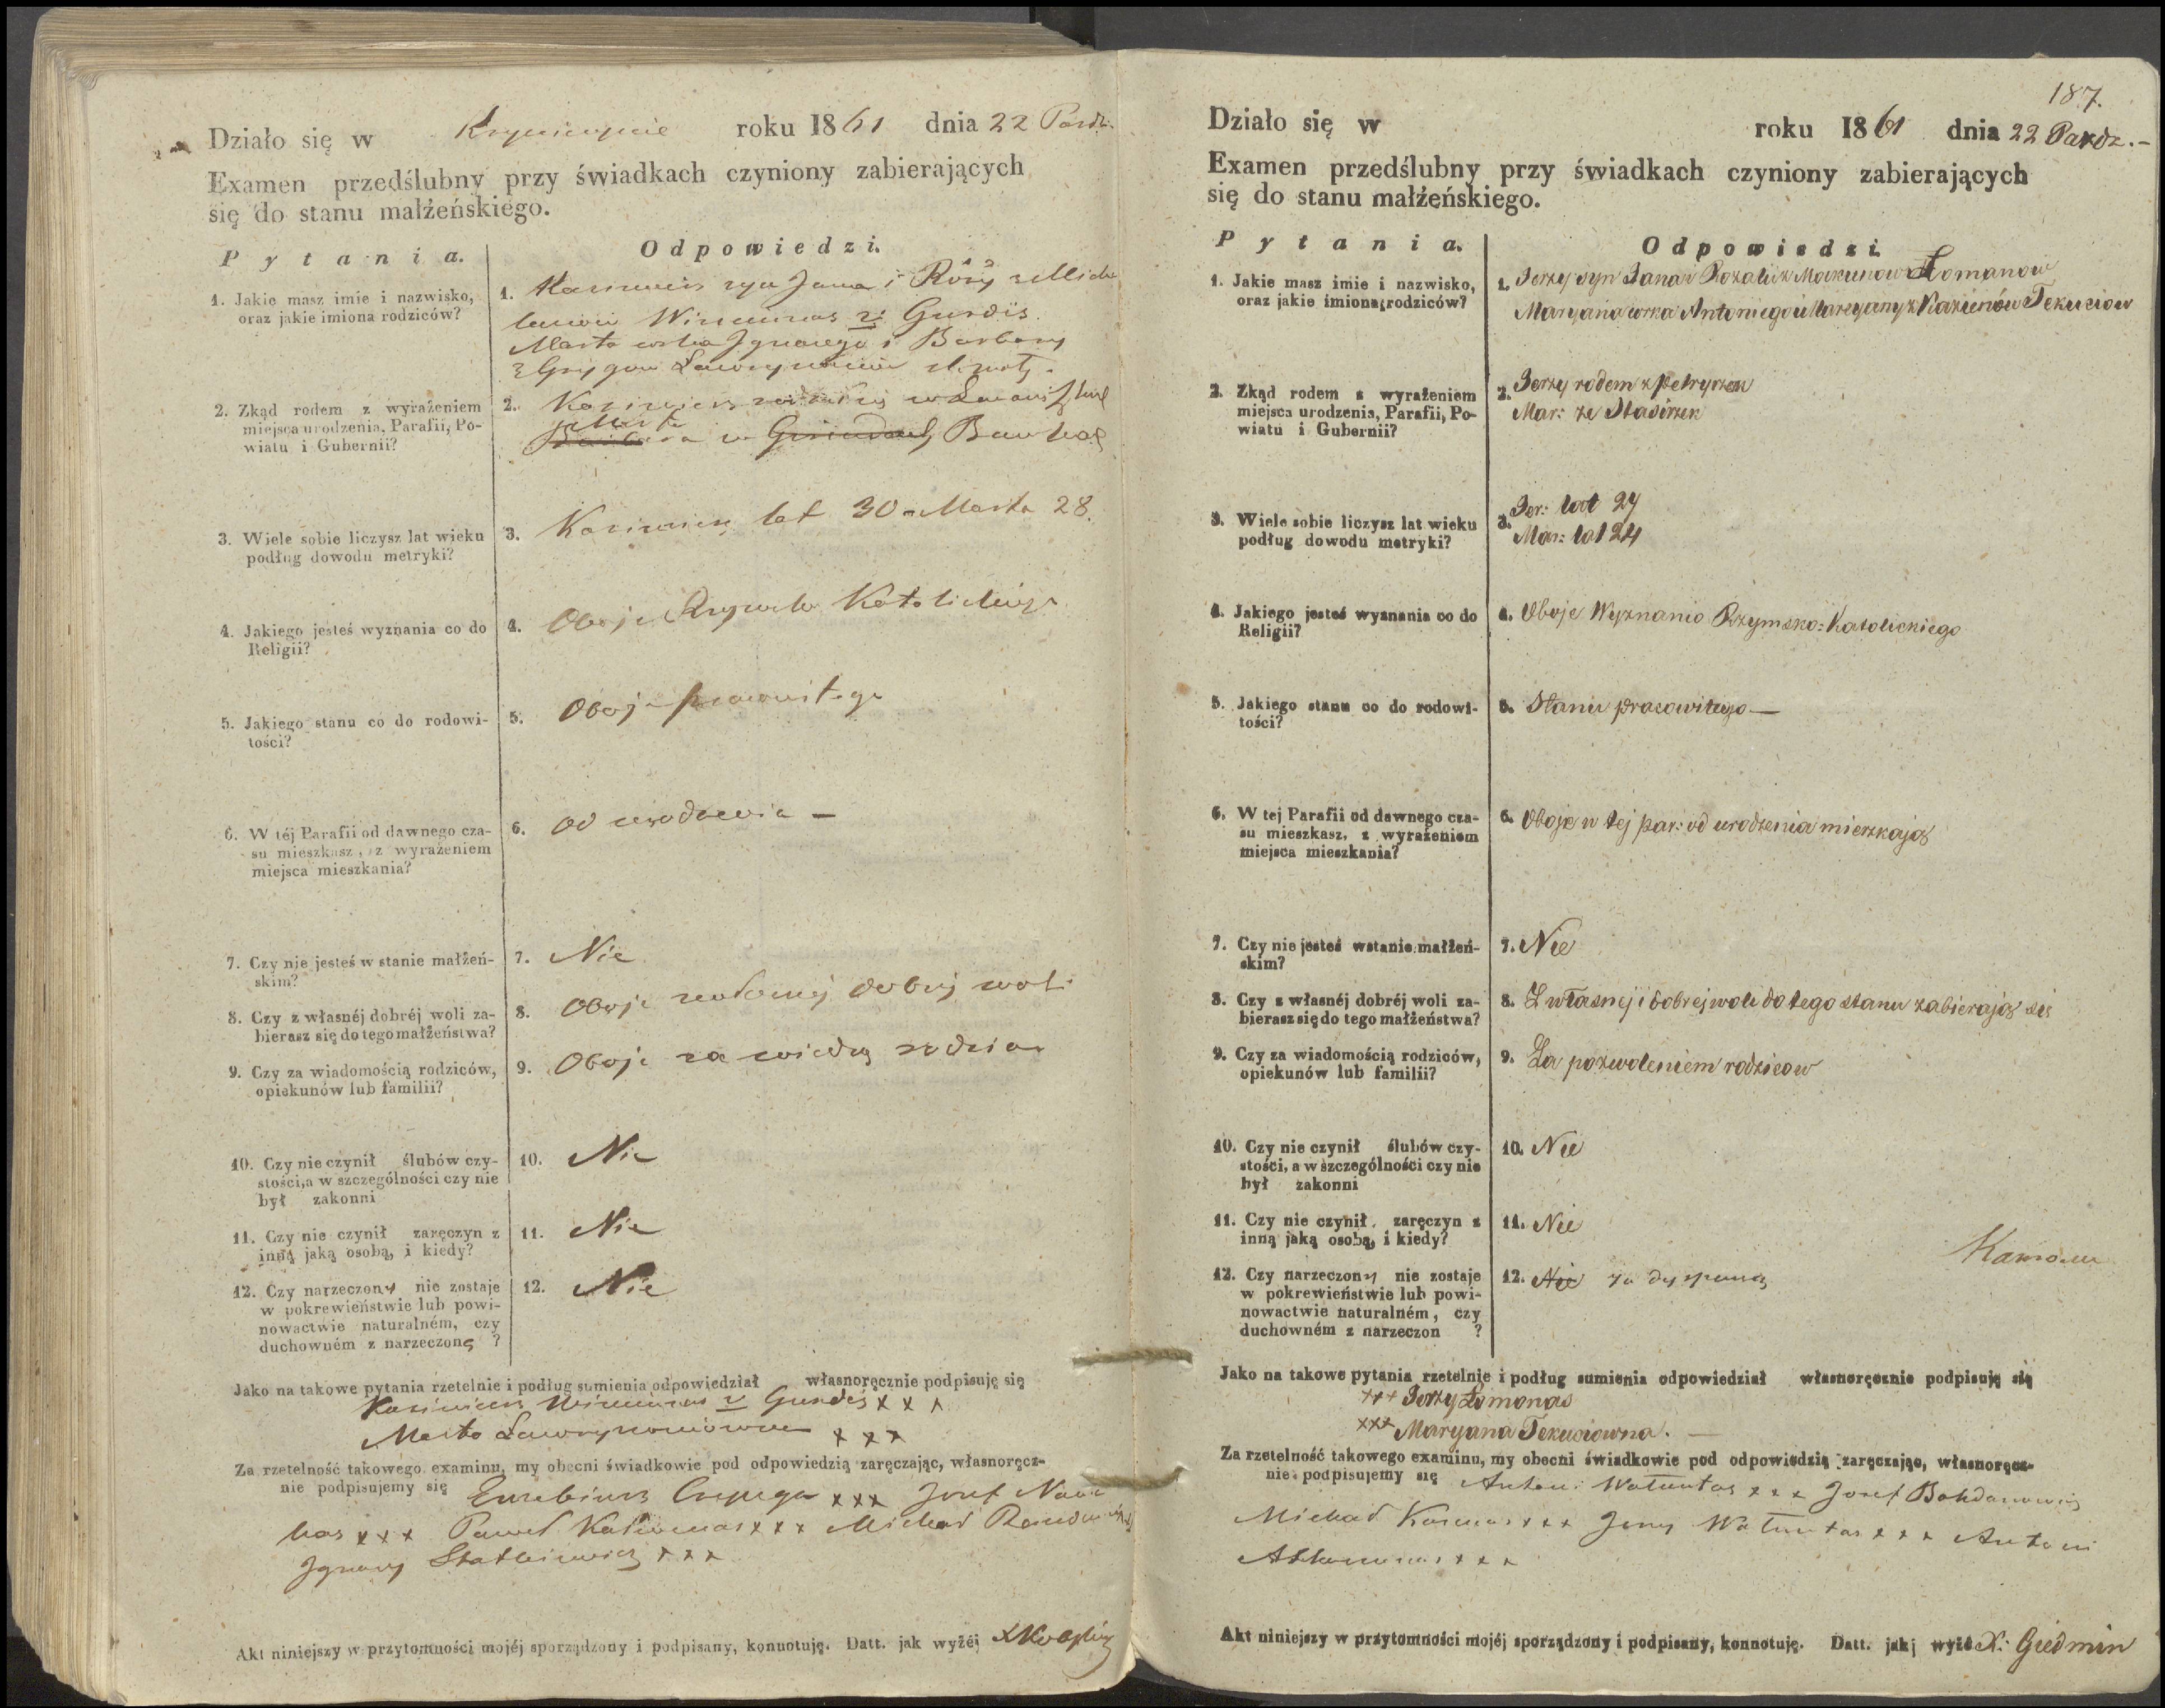 Działo się w roku 1861 dnia 22
Examen przedślubny przy świadkach czyniony zabierających
się do stanu małżeńskiego.
Pytania.
Odpowiedzi.
1. Jakie masz imie i nazwisko,
oraz jakie imiona rodziców?
1. Kazimierz syn Jana i Róży
Gurdis
Marta córka Ignacego i Barbary
2. Zkąd rodem z wyrażeniem
miejsca urodzenia, Parafii, Po-
wiatu i Gubernii?
2. Kazimierz
Marta
3. Wiele sobie liczysz lat wieku
podług dowodu metryki?
3. Kazimierz lat 30 Marta 28.
4. Jakiego jesteś wyznania co do
Religii?
4. Oboje Rzymsko Katolickiego
5. Jakiego stanu co do rodowi-
tości?
5. Oboje pracowitego
6. W téj Parafii od dawnego cza-
su mieszkasz, z wyrażeniem
miejsca mieszkania?
6. Od urodzenia —
7. Czy nie jesteś w stanie małżeń-
skim?
7. Nie
8. Czy z własnéj dobréj woli za-
bierasz się do tego małżeństwa?
8. Oboje dobrej woli
9. Czy za wiadomością rodziców,
opiekunów lub familii?
9. Oboje za wiedzą
10. Czy nie czynił ślubów czy-
stości, a w szczególności czy nie
był zakonni
10. Nie
11. Czy nie czynił zaręczyn z
inną jaką osobą, i kiedy?
11. Nie
12. Czy narzeczony nie zostaje
w pokrewieństwie lub powi-
nowactwie naturalném, czy
duchowném z narzeczoną ?
12. Nie
Jako na takowe pytania rzetelnie i podług sumienia odpowiedział własnoręcznie podpisuję się
Kazimierz x x x
Marta x x x
Za rzetelność takowego examinu, my obecni świadkowie pod odpowiedzią zaręczając, własnoręcz-
nie podpisujemy się x x x Jozef
x x x Paweł x x x Michał
Ignacy x x x
Akt niniejszy w przytomności mojéj sporządzony i podpisany, konnotuję. Datt. jak wyżéj
187.
Działo się w roku 1861 dnia 22 Pazdz.-
Examen przedślubny przy świadkach czyniony zabierających
się do stanu małżeńskiego.
Pytania.
Odpowiedzi.
1. Jakie masz imie i nazwisko,
oraz jakie imiona rodziców?
1. Jerzy syn Jana i Rozalii z
Maryana corka Antoniego i Maryanny z
2. Zkąd rodem z wyrażeniem
miejsca urodzenia, Parafii, Po-
wiatu i Gubernii?
2. Jerzy rodem z
Mar: ze
3. Wiele sobie liczysz lat wieku
podług dowodu metryki?
3. Jer: lat
Mar: lat 24
4. Jakiego jesteś wyznania co do
Religii?
4. Oboje Wyznania Rzymsko: Katolickiego
5. Jakiego stanu co do rodowi-
tości?
5. Stanu pracowitego —
6. W tej Parafii od dawnego cza-
su mieszkasz, z wyrażeniem
miejsca mieszkania?
6. Oboje w tej par: od urodzenia mieszkają
7. Czy nie jesteś wstanie małżeń-
skim?
7. Nie
8. Czy z własnéj dobréj woli za-
bierasz się do tego małżeństwa?
8. Z własnej i dobrej woli do tego stanu zabierają się
9. Czy za wiadomością rodziców,
opiekunów lub familii?
9. Za pozwoleniem rodzicow
10. Czy nie czynił ślubów czy-
stości, a w szczególności czy nie
był zakonni
10. Nie
11. Czy nie czynił zaręczyn z
inną jaką osobą, i kiedy?
11. Nie
12. Czy narzeczony nie zostaje
w pokrewieństwie lub powi-
nowactwie naturalném, czy
duchowném z narzeczon ?
12. Nie za
Jako na takowe pytania rzetelnie i podług sumienia odpowiedział własnoręcznie podpisuję się
xxx Jerzy
xxx Maryana Tekuciowna. —
Za rzetelność takowego examinu, my obecni świadkowie pod odpowiedzią zaręczając, własnoręcz-
nie podpisujemy się Antoni x x x Jozef
Michał x x x Jerzy x x x Antoni
x x x
Akt niniejszy w przytomności mojéj sporządzony i podpisany, konnotuję. Datt. jakj wyżé X. Giedmin